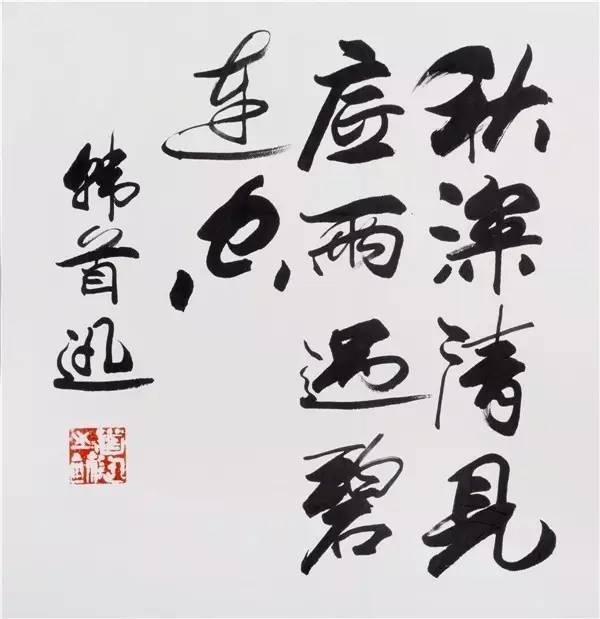 秋深清見
底雨過碧
連空
韩首迅